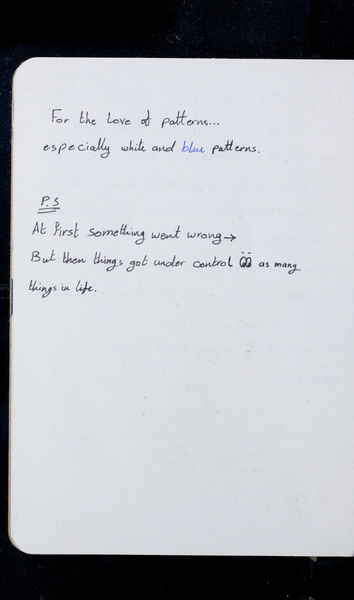 For the Love of patterns...
especially white and blue patterns.
P.S
At first something went wrong→
But then things got under control as many
things in life.